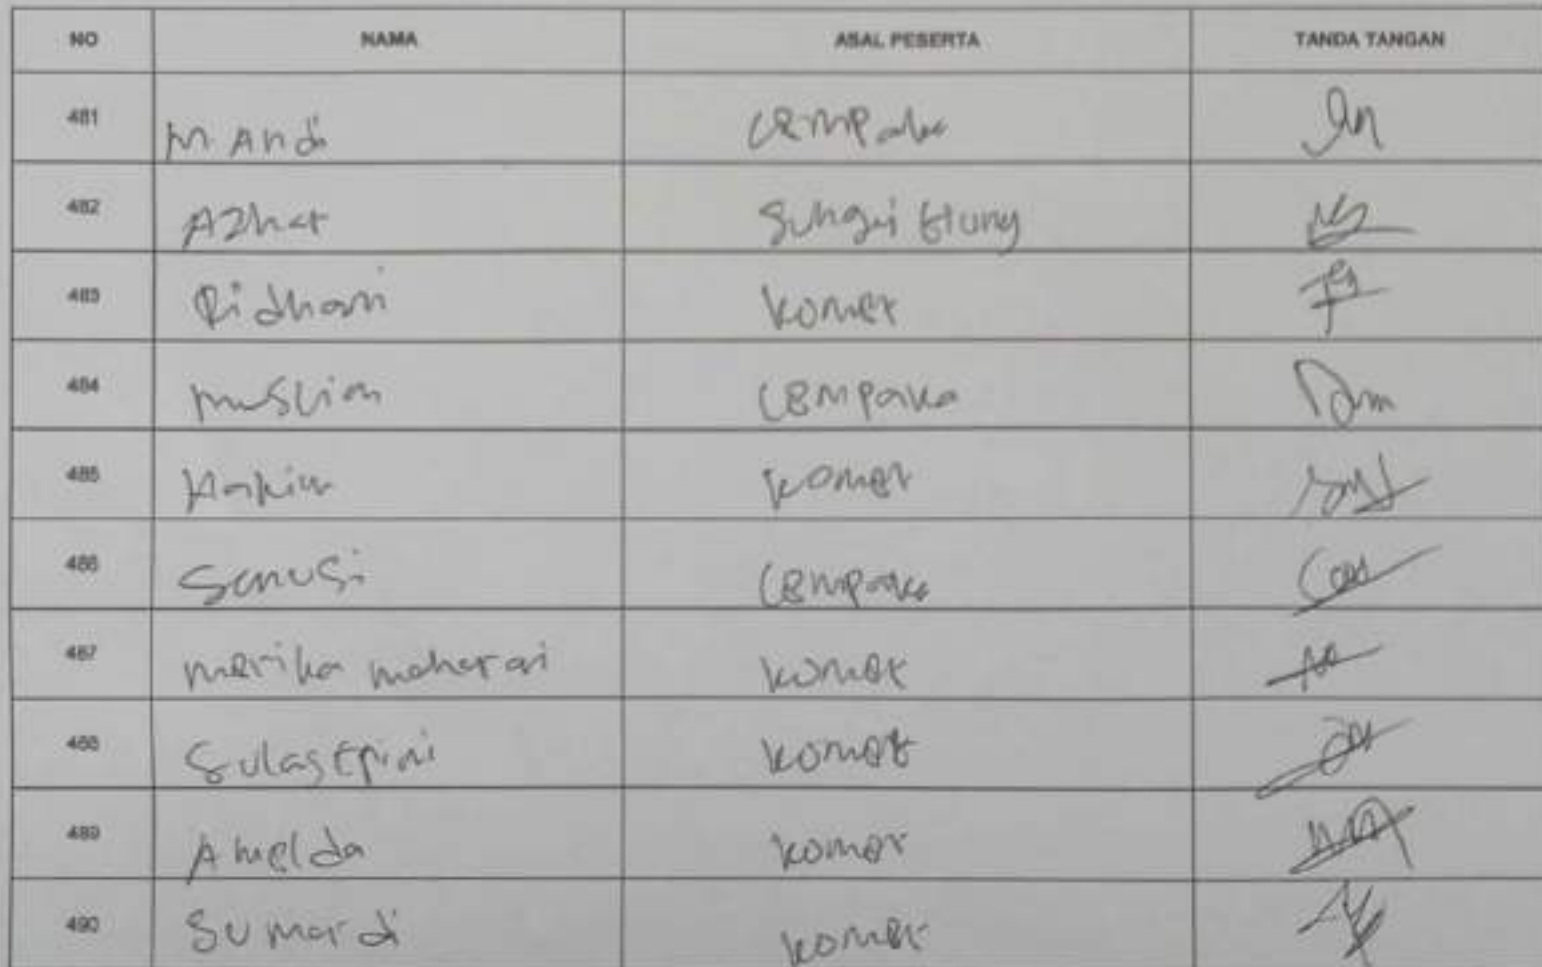 NO NAMA ASAL PESERTA TANDA TANGAN
481 M Andi Cempaka
482 Azhar Sungai Ulung
483 Ridhani Komet
484 Muslim Cempaka
485 Hakim Komet
486 Sanusi Cempaka
487 Merika maharani Komet
488 Sulastrini Komet
489 Amelda Komet
490 Sumardi Komet